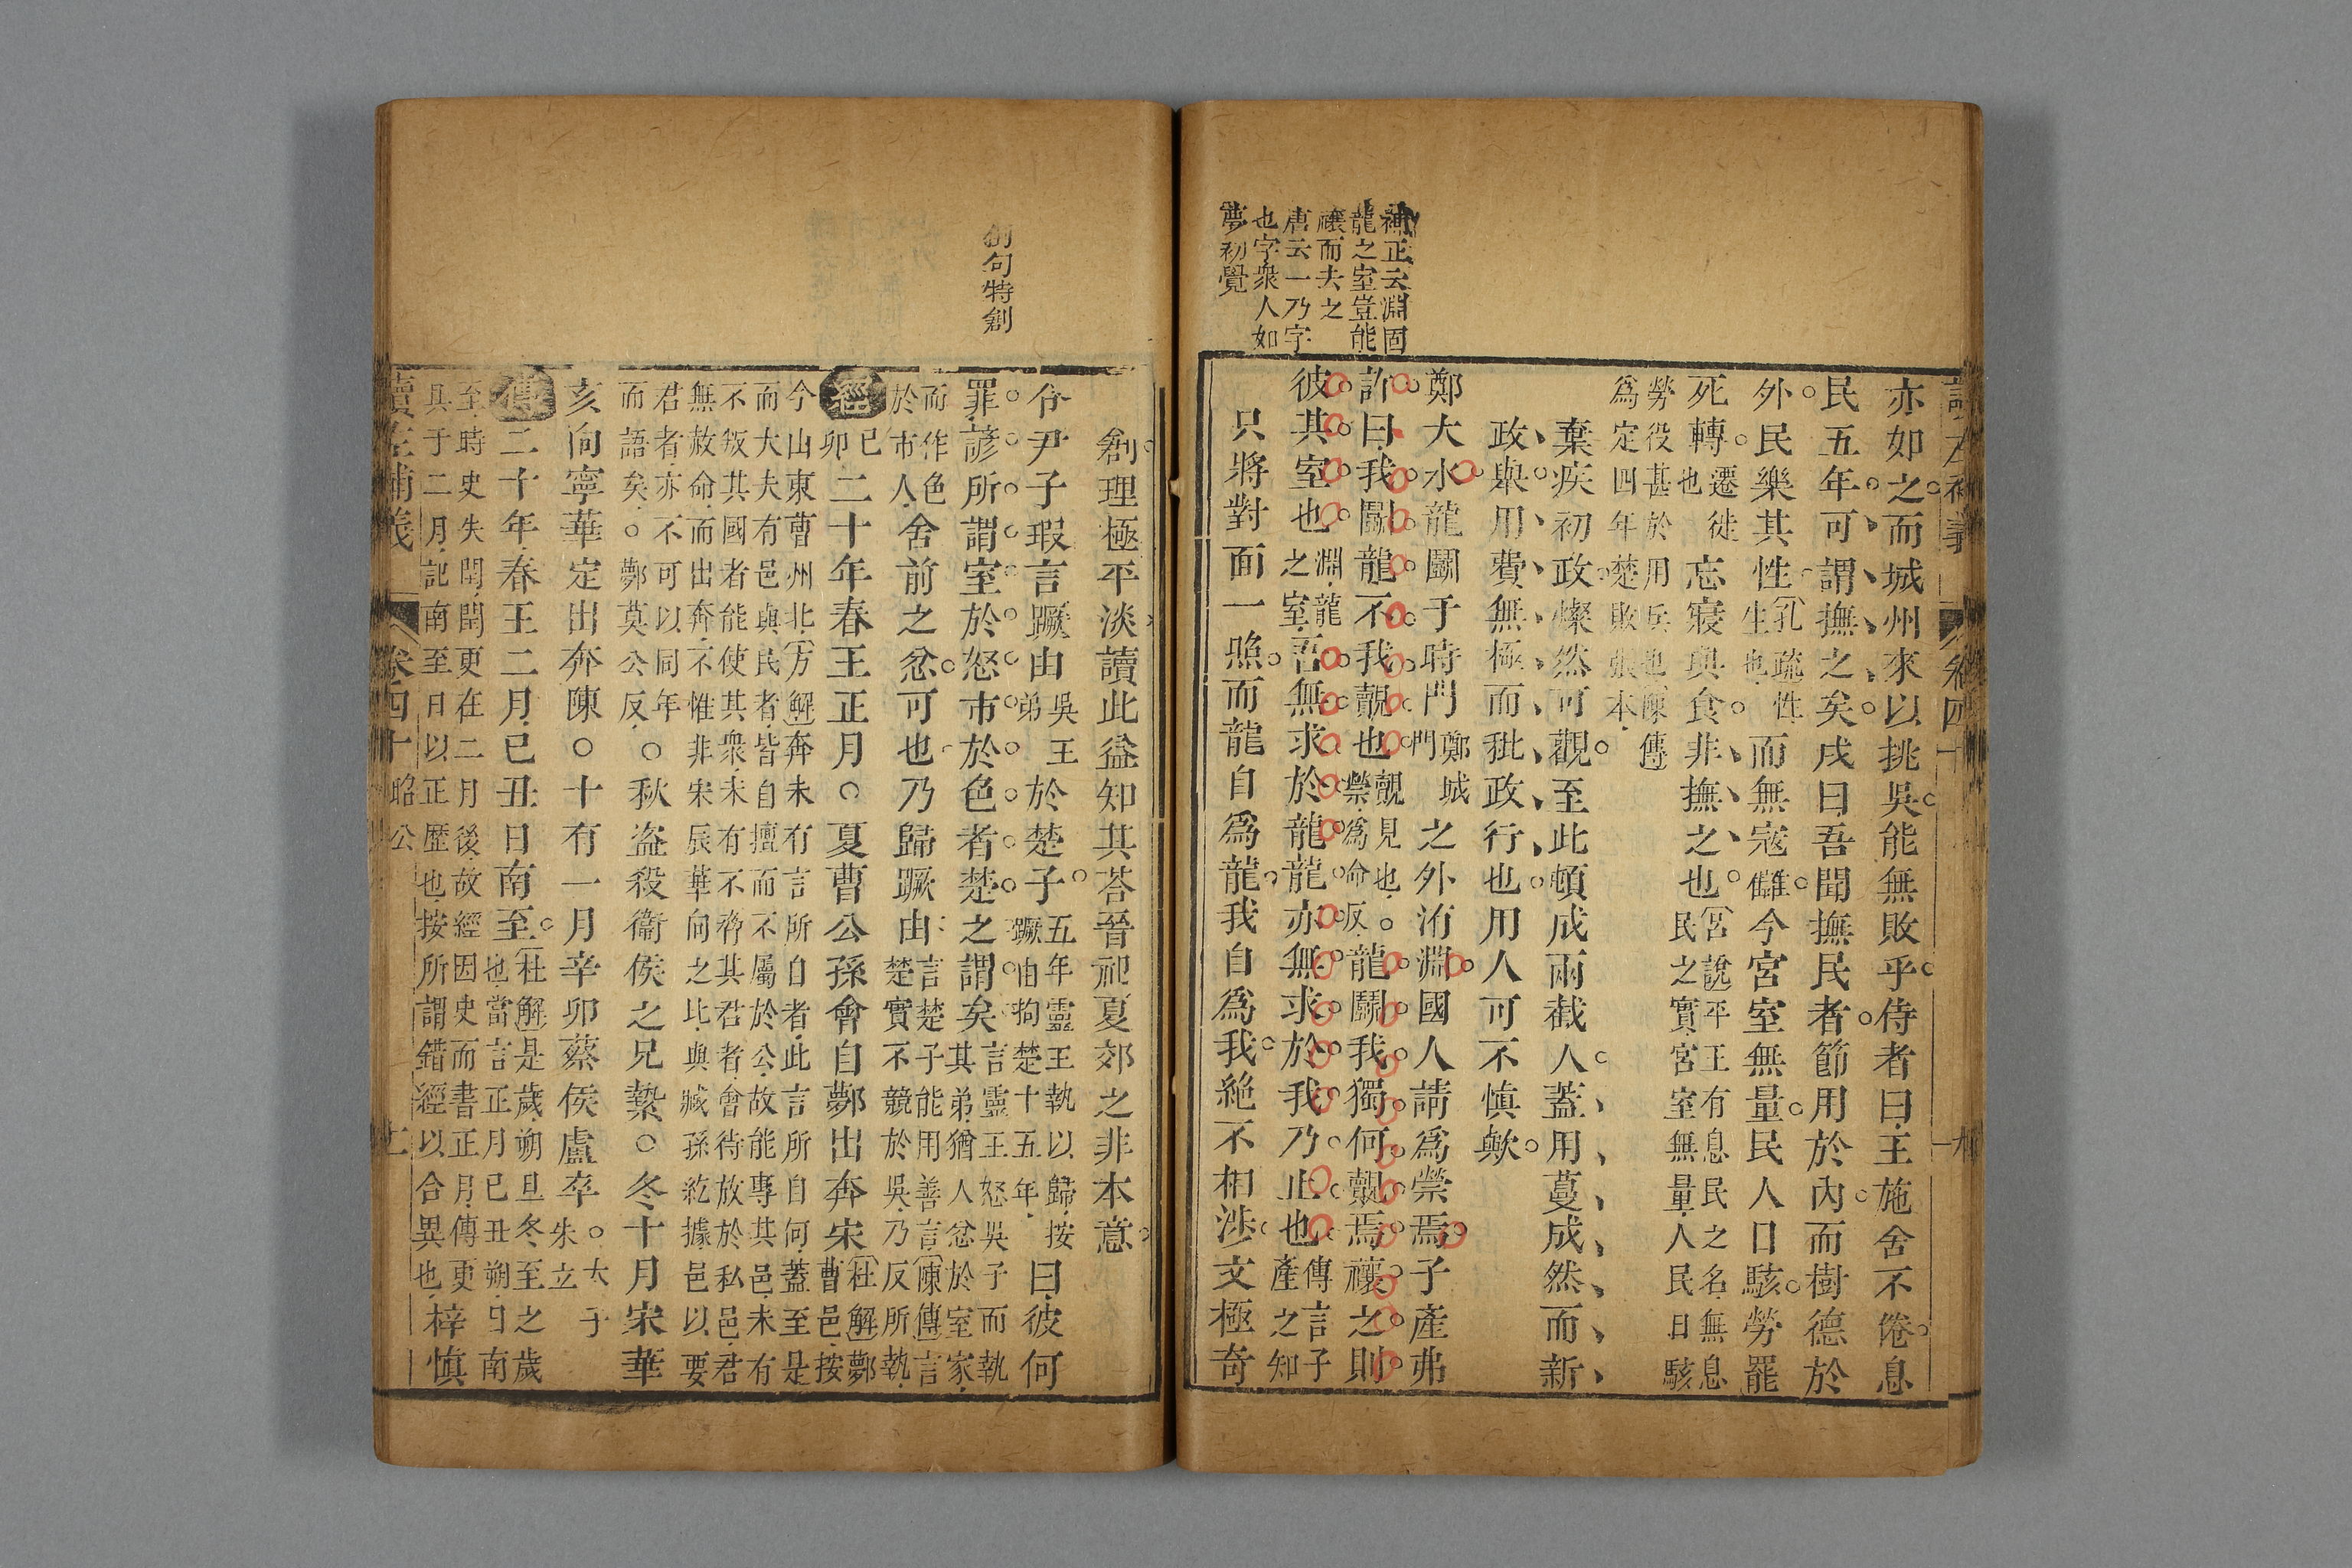 補正云淵固
龍之室豈能
禳而去之
唐云一乃字
也字衆人如
夢初覺
亦如之而城州來以挑吳能無敗乎侍者曰王施舍不倦息
民五年可謂撫之矣戌曰吾聞撫民者節用於內而樹德於
外民樂其性孔疏性生也而無寇讎今宮室無量民人日駭勞罷
死轉遷徙也忘寢與食非撫之也宮說平王有息民之名無息民之實宮室無量人民日駭
勞役甚於用兵也陳傳為定四年楚敗張本
棄疾初政燦然可觀至此頓成兩截人蓋用蔓成然而新
政與用費無極而秕政行也用人可不慎歟
鄭大水龍鬬于時門鄭城門之外洧淵國人請為禜焉子產弗
許曰我鬬龍不我覿也覿見也。禜為命反龍鬬我獨何覿焉禳之則
彼其室也淵龍之室吾無求於龍龍亦無求於我乃止也傳言子產之知
只將對面一照而龍自爲龍我自爲我絶不相涉文極奇
創句特創
創理極平淡讀此益知其荅晉祀夏郊之非本意
令尹子瑕言蹶由吳王弟於楚子五年靈王執以歸按蹶由拘楚十五年曰彼何
罪諺所謂室於怒市於色者楚之謂矣言靈王怒吳子而執其弟猶人忿於室家
而作色於市人舍前之忿可也乃歸蹶由言楚子能用善言陳傳言楚實不競於吳乃反所執
經己卯二十年春王正月○夏曹公孫會自鄸出奔宋杜解鄸曹邑按
今山東曹州北方解奔未有言所自者此言所自何蓋至是
而大夫有邑與民者皆自擅而不屬於公故能專其邑未有
不叛其國者能使其衆未有不脅其君者會待放於私邑君
無赦命而出奔不惟非宋辰華向之比與臧孫紇據邑以要
君者亦不可以同年而語矣。鄸莫公反○秋盜殺衞侯之兄縶○冬十月宋華
亥向寧華定出奔陳○十有一月辛卯蔡侯廬卒。太子朱立
傳二十年春王二月己丑日南至杜解是歲朔旦冬至之歲也當言正月己丑朔日南
至時史失閏閏更在二月後故經因史而書正月傳更
具于二月記南至日以正歷也按所謂錯經以合異也梓慎
讀左補義
卷四十
昭公